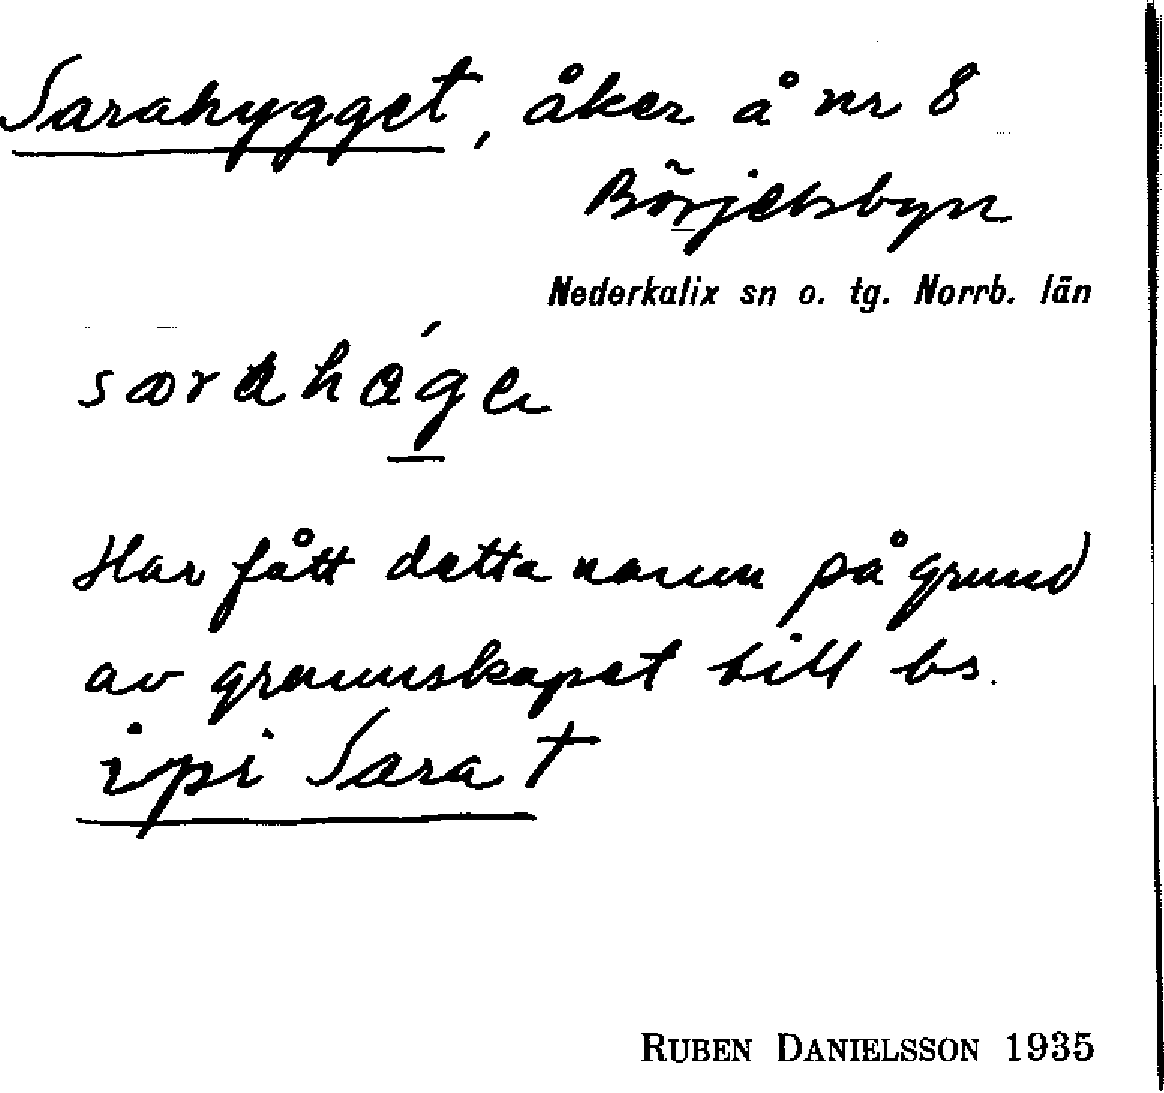 Sarahygget, åker å nr 8
Börjelsbyn
Nederkalix sn o. tg. Norrb. län
Har fått detta namn på grund
av grannskapet till bs.
ipi Sara †
RUBEN DANIELSSON 1935